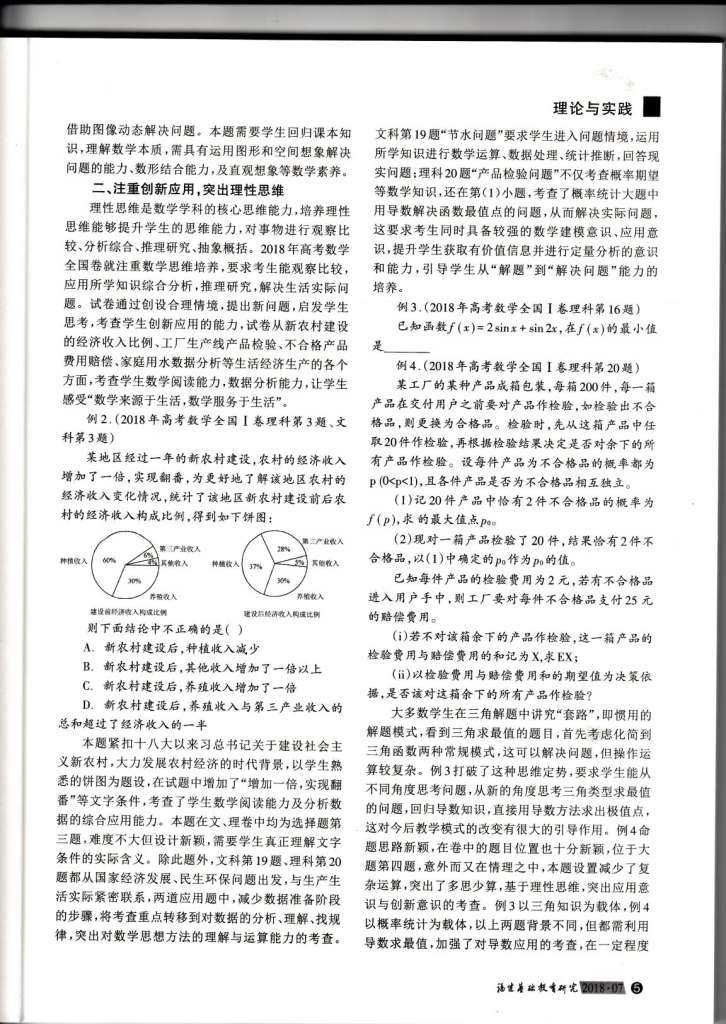 理论与实践
借助图像动态解决问题。本题需要学生回归课本知
识,理解数学本质,需具有运用图形和空间想象解决
问题的能力、数形结合能力,及直观想象等数学素养。
二、注重创新应用,突出理性思维
理性思维是数学学科的核心思维能力,培养理性
思维能够提升学生的思维能力,对事物进行观察比
较、分析综合、推理研究、抽象概括。2018年高考数学
全国卷就注重数学思维培养,要求考生能观察比较,
应用所学知识综合分析,推理研究,解决生活实际问
题。试卷通过创设合理情境,提出新问题,启发学生
思考,考查学生创新应用的能力,试卷从新农村建设
的收入比例、工厂生产线产品检验、不合格产品
费用赔偿、家庭用水数据分析等生活经济生产的各个
方面,考查学生数学阅读能力,数据分析能力,让学生
感受“数学来源于生活,数学服务于生活”。
例2.(2018年高考数学全国Ⅰ卷理科第3题、文
科第3题)
某地区经过一年的新农村建设,农村的经济收入
增加了一倍,实现翻番,为更好地了解该地区农村的
经济收入变化情况,统计了该地区新农村建设前后农
村的经济收入构成比例,得到如下饼图:
种植收入
60%
第三产业收入
6%
4%
其他收入
30%
养殖收入
建设前经济收入构成比例
种植收入
37%
第三产业收入
28%
5%
其他收入
30%
养殖收入
建设后经济收入构成比例
则下面结论中不正确的是( )
A. 新农村建设后,种植收入减少
B. 新农村建设后,其他收入增加了一倍以上
C. 新农村建设后,养殖收入增加了一倍
D. 新农村建设后,养殖收入与第三产业收入的
总和超过了经济收入的一半
本题紧扣十八大以来习总书记关于建设社会主
义新农村,大力发展农村经济的时代背景,以学生熟
悉的饼图为题设,在试题中增加了“增加一倍,实现翻
番”等文字条件,考查了学生数学阅读能力及分析数
据的综合应用能力。本题在文、理卷中均为选择题第
三题,难度不大但设计新颖,需要学生真正理解文字
条件的实际含义。除此题外,文科第19题、理科第20
题都从国家经济发展、民生环保问题出发,与生产生
活实际紧密联系,两道应用题中,减少数据准备阶段
的步骤,将考查重点转移到对数据的分析、理解、找规
律,突出对数学思想方法的理解与运算能力的考查。
文科第19题“节水问题”要求学生进入问题情境,运用
所学知识进行数学运算、数据处理、统计推断,回答现
实问题;理科20题“产品检验问题”不仅考查概率期望
等数学知识,还在第(1)小题,考查了概率统计大题中
用导数解决函数最值点的问题,从而解决实际问题,
这要求考生同时具备较强的数学建模意识、应用意
识,提升学生获取有价值信息并进行定量分析的意识
和能力,引导学生从“解题”到“解决问题”能力的
培养。
例3.(2018年高考数学全国Ⅰ卷理科第16题)
已知函数f(x)=2sinx+sin2x,在f(x)的最小值
是______
例4.(2018年高考数学全国Ⅰ卷理科第20题)
某工厂的某种产品成箱包装,每箱200件,每一箱
产品在交付用户之前要对产品作检验,如检验出不合
格品,则更换为合格品。检验时,先从这箱产品中任
取20件作检验,再根据检验结果决定是否对余下的所
有产品作检验。设每件产品为不合格品的概率都为
p (0<p<1),且各件产品是否为不合格品相互独立。
(1)记20件产品中恰有2件不合格品的概率为
f(p),求 的最大值点p₀。
(2)现对一箱产品检验了20件,结果恰有2件不
合格品,以(1)中确定的p₀作为p₀的值。
已知每件产品的检验费用为2元,若有不合格品
进入用户手中,则工厂要对每件不合格品支付25元
的赔偿费用。
(i)若不对该箱余下的产品作检验,这一箱产品的
检验费用与赔偿费用的和记为X,求EX;
(ii)以检验费用与赔偿费用和的期望值为决策依
据,是否该对这箱余下的所有产品作检验?
大多数学生在三角解题中讲究“套路”,即惯用的
解题模式,看到三角求最值的题目,首先考虑化简到
三角函数两种常规模式,这可以解决问题,但操作运
算较复杂。例3打破了这种思维定势,要求学生能从
不同角度思考问题,从新的角度思考三角类型求最值
的问题,回归导数知识,直接用导数方法求出极值点,
这对今后教学模式的改变有很大的引导作用。例4命
题思路新颖,在卷中的题目位置也十分新颖,位于大
题第四题,意外而又在情理之中,本题设置减少了复
杂运算,突出了多思少算,基于理性思维,突出应用意
识与创新意识的考查。例3以三角知识为载体,例4
以概率统计为载体,以上两题背景不同,但都需利用
导数求最值,加强了对导数应用的考查,在一定程度
福建基础教育研究 2018·07 5